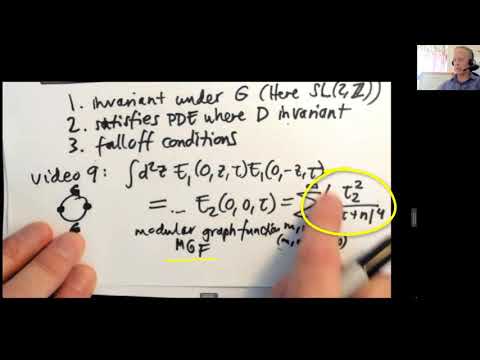 1. invariant under G (Here SL(2,ℤ))
2. satisfies PDE where D invariant
3. falloff conditions
video 9: ∫d²z E₁(0,z,τ)E₁(0,-z,τ)
G
= ... E₂(0,0,τ) = Σ' τ₂²
τ+n|⁴
G
modular graph function
MGF